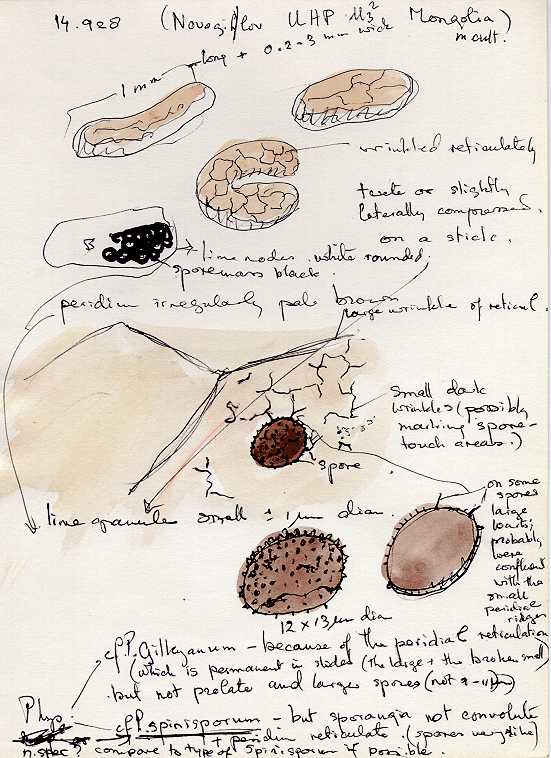 14.928 (Novozhilov UHP Mongolia)
m cult.
1 mm long + 0.2-3 mm wide
wrinkled reticulately
terete or slightly
laterally compressed.
on a stick.
lime nodes. white rounded.
sporemass black.
peridium irregularly pale brown
large wrinkle of reticul.
small dark
wrinkles (possibly
marking spore-
touch areas.)
spore
on some
spores
large
warts;
probably
were
confluent
with the
small
peridial
ridges
lime granules small ± 1 µm diam.
12 x 13 µm dia
cf P. Gilkeyanum - because of the peridial reticulation
(which is permanent in slides (the large + the broken small)
but not prolate and larger spores (not
Phys.
cf P. spinisporum - but sporangia not convolute
+ peridium reticulate. (spores very alike)
n.spec? compare to type of spinisporum if possible.